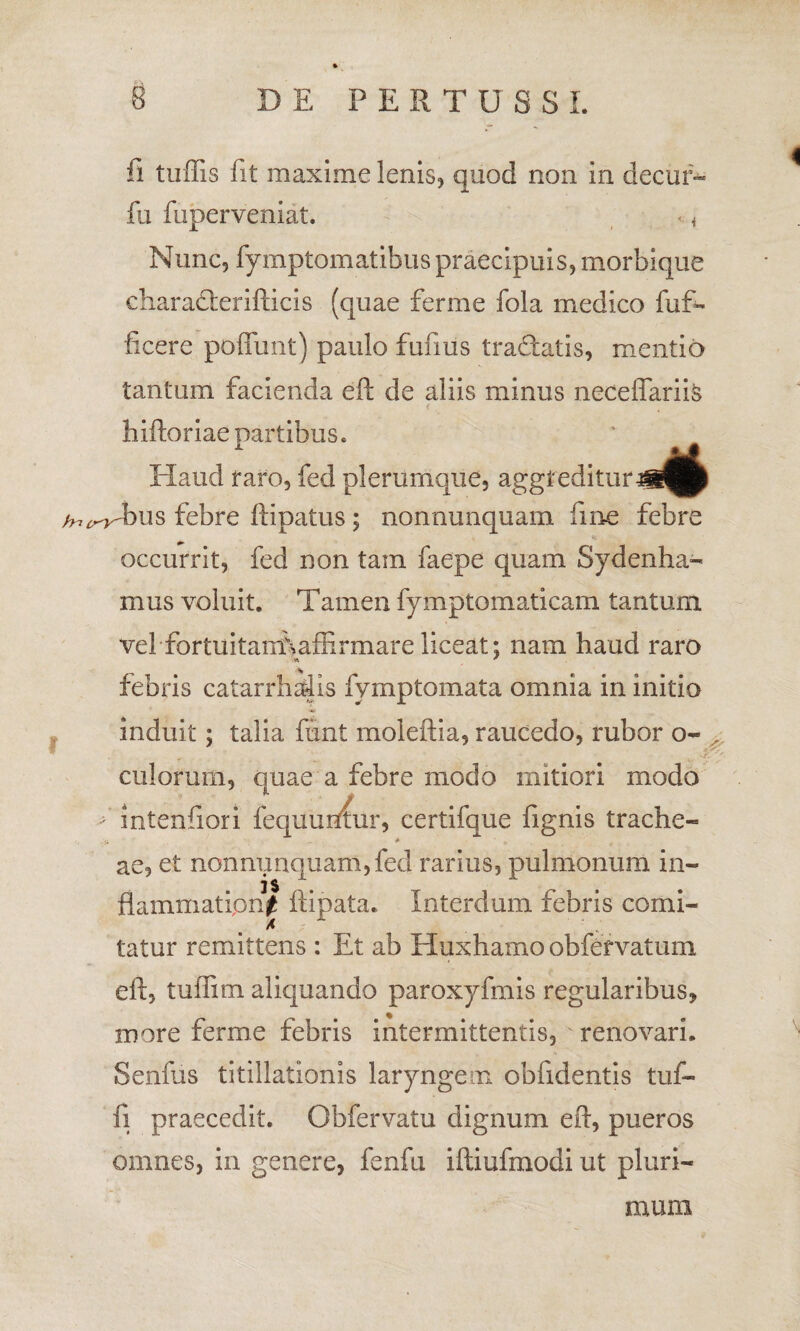 8 DE PERTUSSI.
ſi tuſſis ſit maxime lenis, quod non in decur-
ſu ſuperveniat.
Nunc, ſymptomatibus praecipuis, morbique
characteriſticis (quae ferme ſola medico ſuf-
ficere poſſunt) paulo fuſius tractatis, mentio
tantum facienda eſt de aliis minus neceſſariis
hiſtoriae partibus.
Haud raro, ſed plerumque, aggreditur
mor bus febre ſtipatus; nonnunquam ſine febre
occurrit, ſed non tam ſaepe quam Sydenha-
mus voluit. Tamen ſymptomaticam tantum
vel fortuitam affirmare liceat; nam haud raro
febris catarrhalis ſymptomata omnia in initio
induit; talia ſunt moleſtia, raucedo, rubor o-
culorum, quae a febre modo mitiori modo
intenſiori ſequuntur, certiſque ſignis trache-
ae, et nonnunquam, ſed rarius, pulmonum in-
flammationis ſtipata. Interdum febris comi-
tatur remittens: Et ab Huxhamo obſervatum
eſt, tuſſim aliquando paroxyſmis regularibus,
more ferme febris intermittentis, renovari.
Senſus titillationis laryngem obſidentis tuſ-
ſi praecedit. Obſervatu dignum eſt, pueros
omnes, in genere, ſenſu iſtiuſmodi ut pluri-
mum